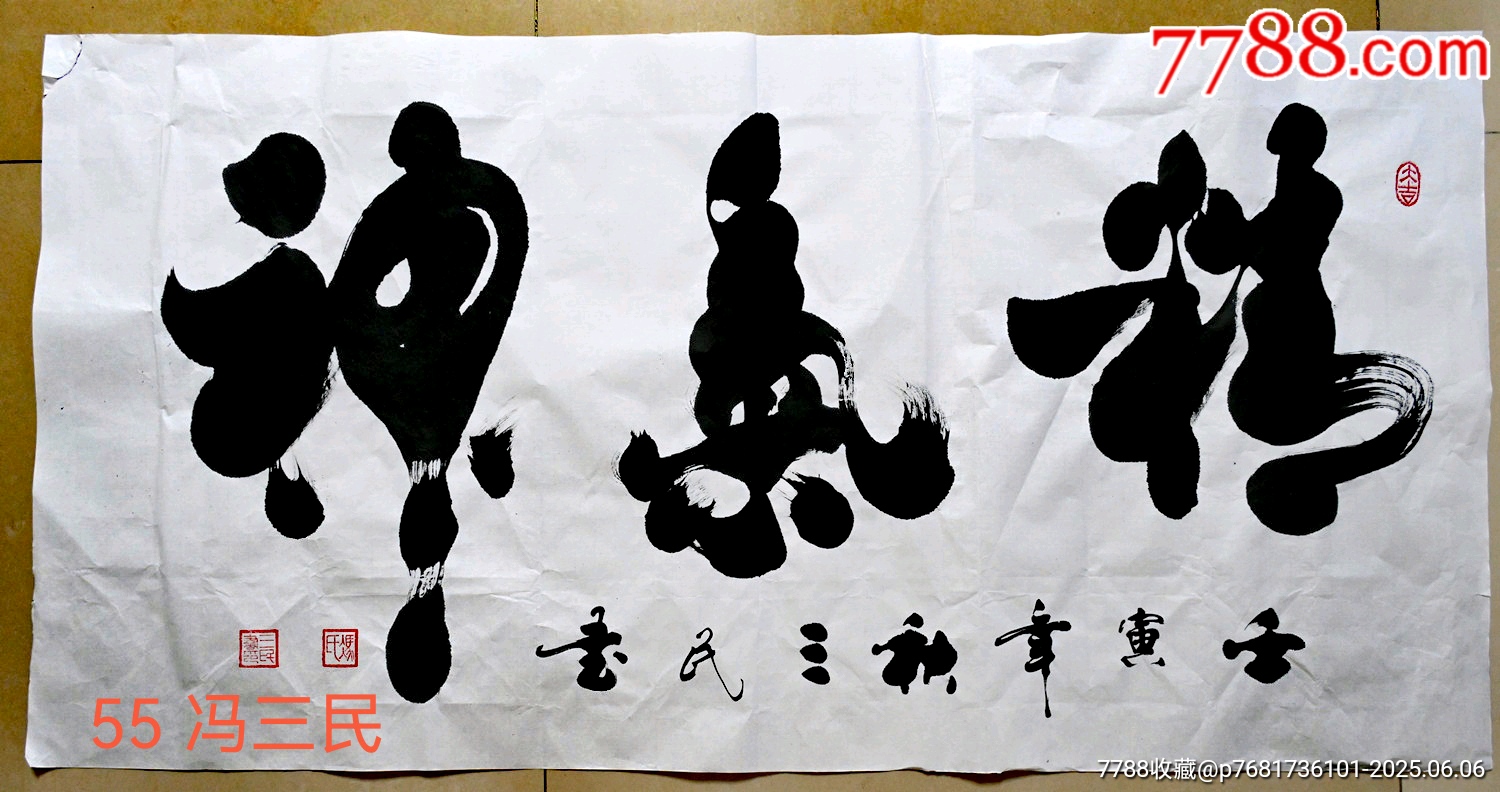 7788.com
精氣神
大吉
壬寅年秋三民書
馮氏
55 冯三民
7788收藏@p7681736101-2025.06.06